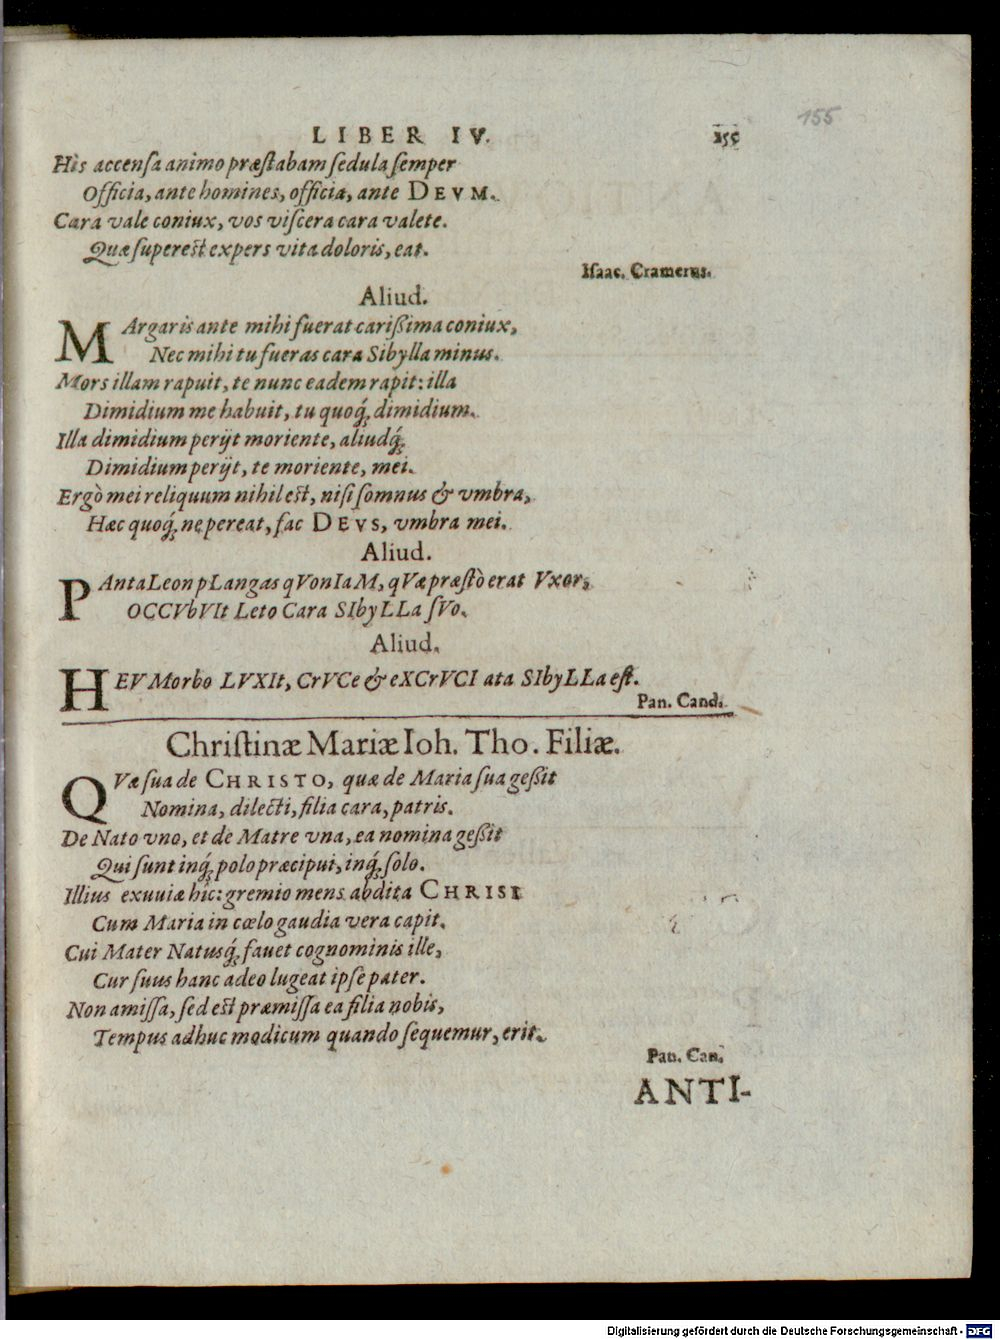 155
LIBER IV. 155
His accensa animo præstabam sedula semper
Officia, ante homines, officia, ante DEVM.
Cara vale coniux, vos viscera cara valete.
Quæ superest expers vita doloris, eat.
Isaac. Cramerus.
Aliud.
MArgaris ante mihi fuerat carißima coniux,
Nec mihi tu fueras cara Sibylla minus.
Mors illam rapuit, te nunc eadem rapit: illa
Dimidium me habuit, tu quoq́; dimidium.
Illa dimidium perijt moriente, aliudq́;
Dimidium perijt, te moriente, mei.
Ergò mei reliquum nihil est, nisi somnus & vmbra,
Hæc quoq́; ne pereat, fac DEVS, vmbra mei.
Aliud.
PAntaLeon pLangas qVonIaM, qVæ præstò erat Vxor,
OCCVbVIt Leto Cara SIbyLLa sVo.
Aliud.
HEV Morbo LVXIt, CrVCe & eXCrVCI ata SIbyLLa est.
Pan. Cand.
Christinæ Mariæ Ioh. Tho. Filiæ.
QVæ sua de CHRISTO, quæ de Maria sua geßit
Nomina, dilecti, filia cara, patris.
De Nato vno, et de Matre vna, ea nomina geßit
Qui sunt inq́; polo præcipui, inq́; solo.
Illius exuuiæ hîc: gremio mens abdita CHRISI
Cum Maria in cœlo gaudia vera capit.
Cui Mater Natusq́; fauet cognominis ille,
Cur suus hanc adeo lugeat ipse pater.
Non amissa, sed est præmissa ea filia nobis,
Tempus adhuc modicum quando sequemur, erit.
Pan. Can.
ANTI-
Digitalisierung gefördert durch die Deutsche Forschungsgemeinschaft - DFG